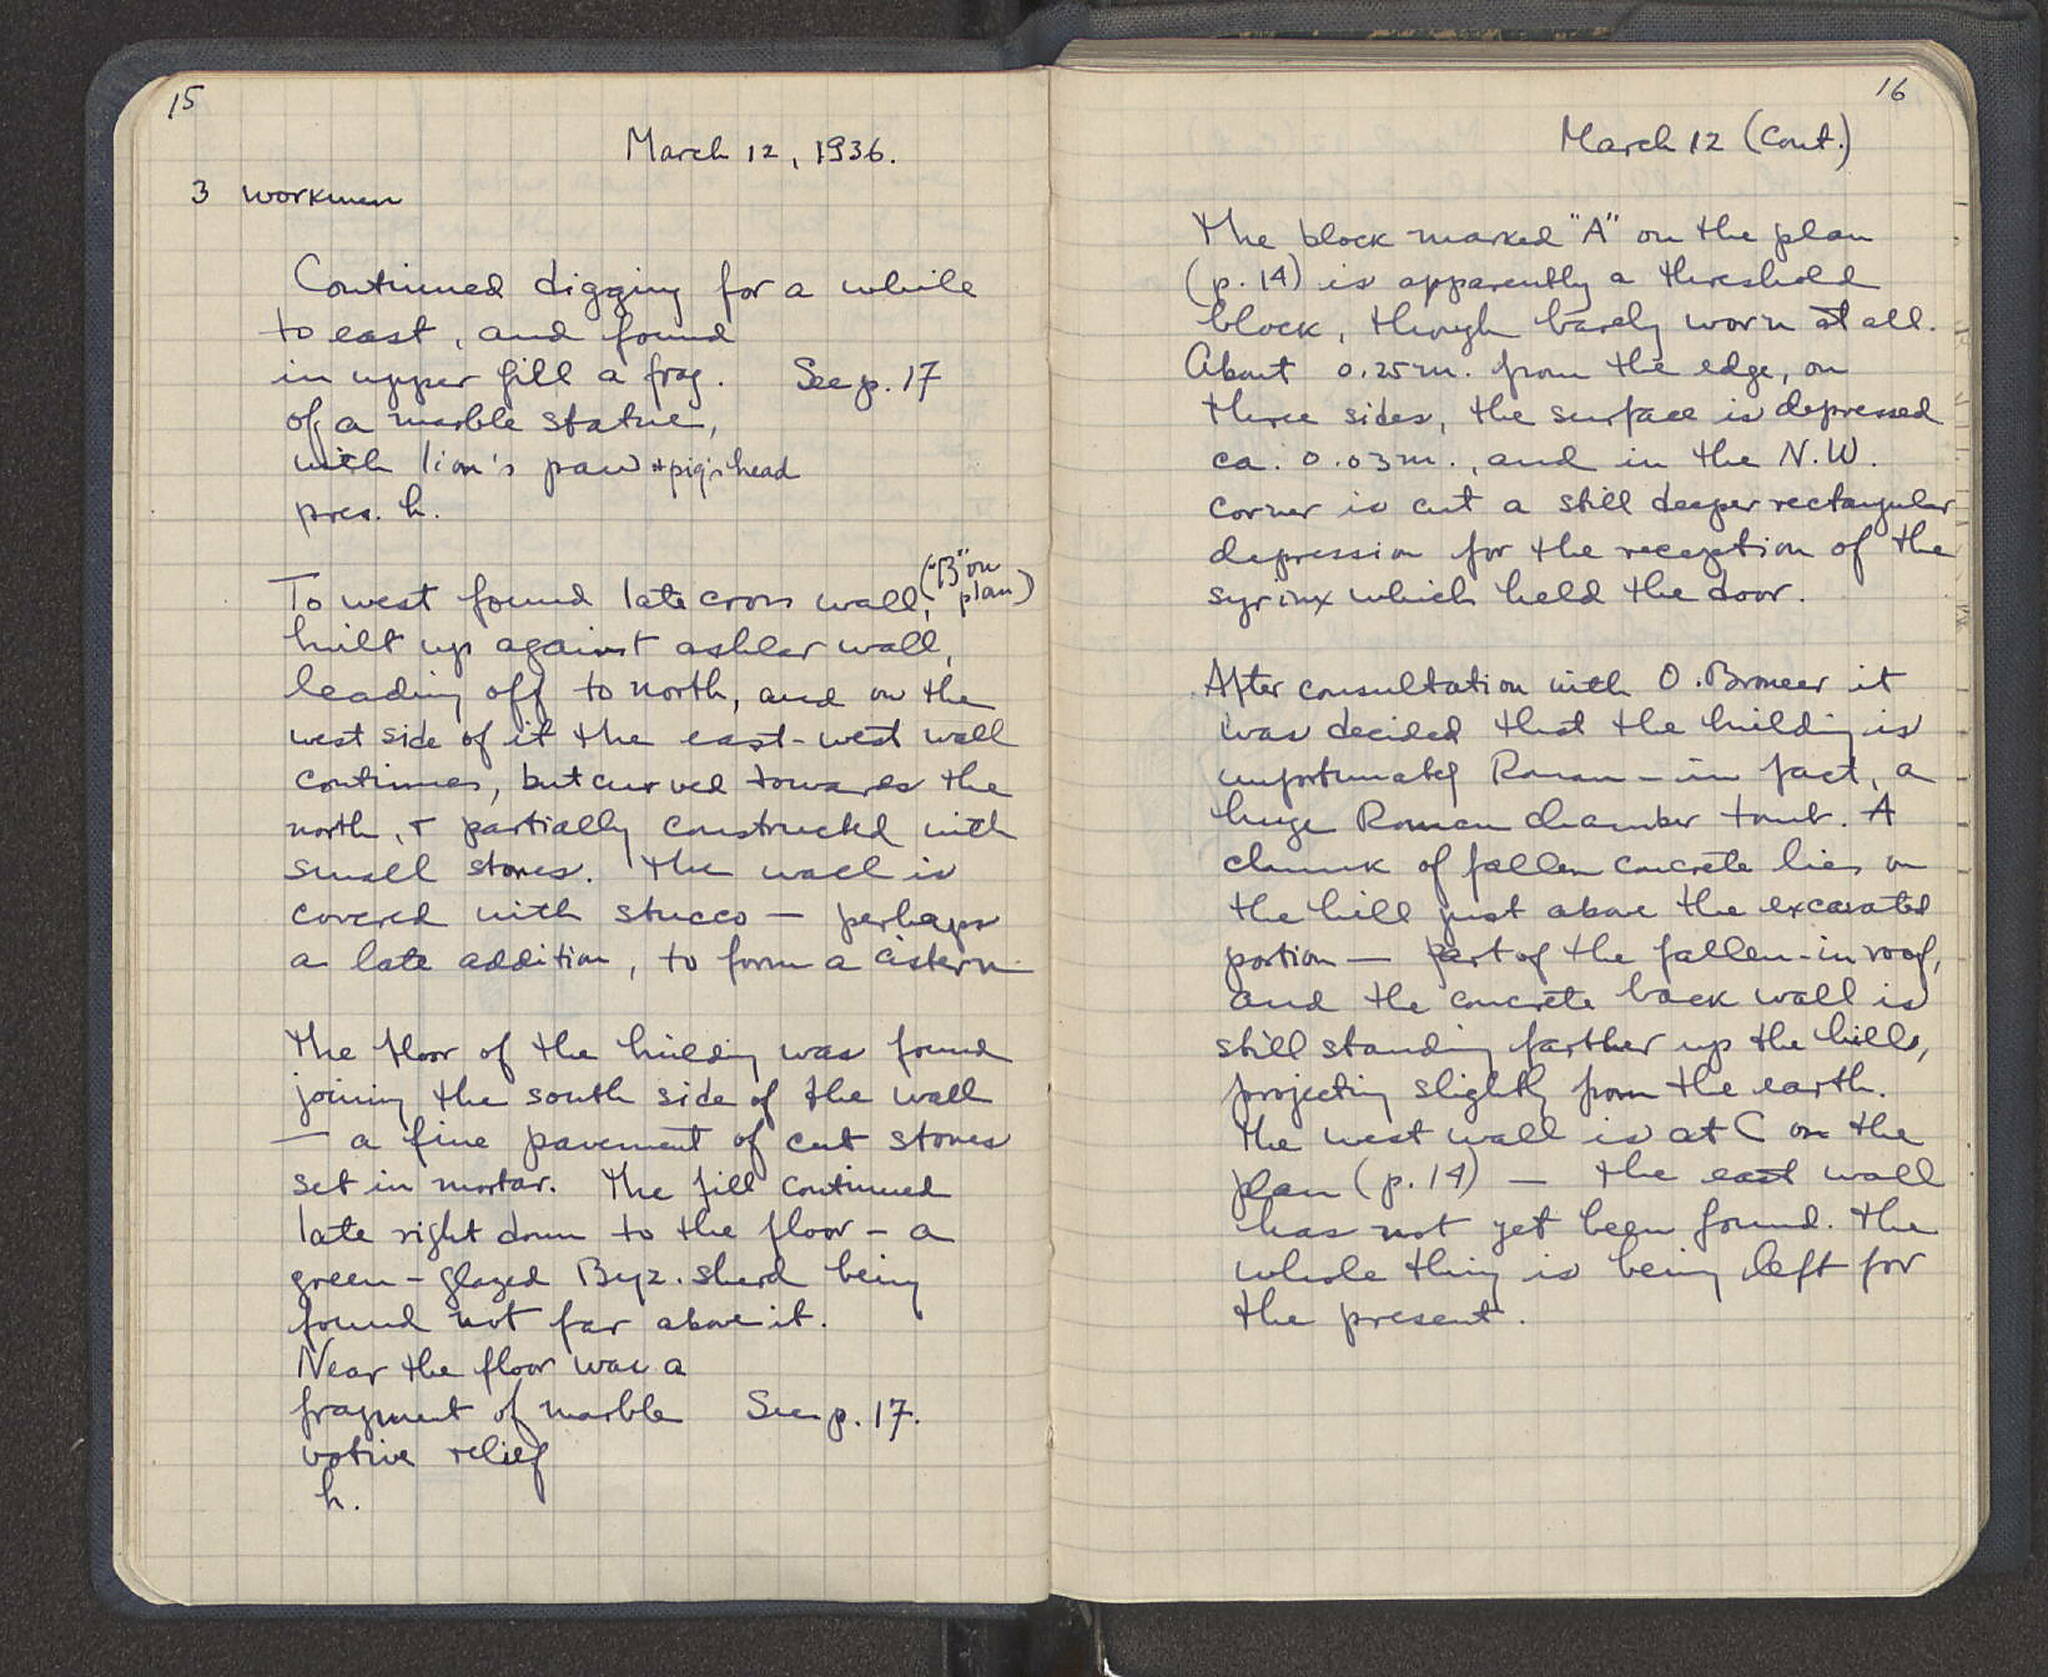 15
March 12, 1936.
3 workmen
Continued digging for a while
to east, and found
in upper fill a frag. See p. 17
of a marble statue,
with lion's paw + pig's head
pres. h.
("B" on
plan)
To west found late cross wall,
built up against ashlar wall,
leading off to north, and on the
west side of it the east-west wall
continues, but curved towards the
north, + partially constructed with
small stones. The wall is
covered with stucco — perhaps
a late addition, to form a cistern
The floor of the building was found
joining the south side of the wall
— a fine pavement of cut stones
set in mortar. The fill continued
late right down to the floor - a
green-glazed Byz. sherd being
found not far above it.
Near the floor was a
fragment of marble See p. 17.
votive relief
h.
16
March 12 (Cont.)
The block marked "A" on the plan
(p. 14) is apparently a threshold
block, though barely worn at all.
About 0.25 m. from the edge, on
three sides, the surface is depressed
ca. 0.03 m., and in the N.W.
corner is cut a still deeper rectangular
depression for the reception of the
syrinx which held the door.
After consultation with O. Broneer it
was decided that the building is
unfortunately Roman - in fact, a
huge Roman chamber tomb. A
chunk of fallen concrete lies on
the hill just above the excavated
portion — part of the fallen-in roof,
and the concrete back wall is
still standing farther up the hill,
projecting slightly from the earth.
The west wall is at C on the
plan (p. 14) — the east wall
has not yet been found. The
whole thing is being left for
the present.